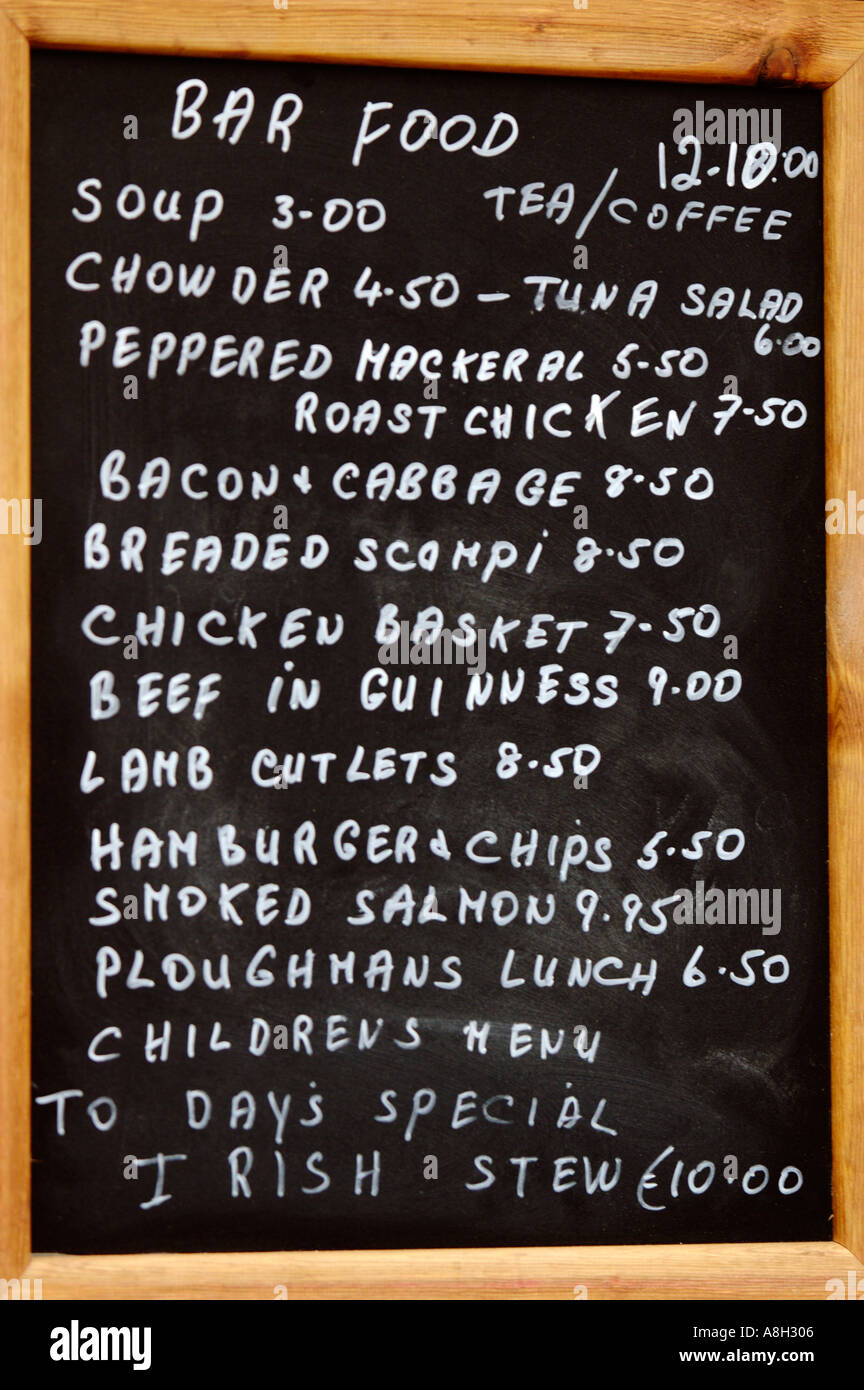 BAR FOOD
12-10.00
SOUP 3-00 TEA/COFFEE
CHOWDER 4.50 - TUNA SALAD
6.00
PEPPERED MACKERAL 5-50
ROAST CHICKEN 7-50
BACON & CABBAGE 8.50
BREADED SCAMPI 8.50
CHICKEN BASKET 7-50
BEEF IN GUINNESS 9.00
LAMB CUTLETS 8.50
HAMBURGER & CHIPS 5.50
SMOKED SALMON 9.95
PLOUGHMANS LUNCH 6.50
CHILDRENS MENU
TO DAY'S SPECIAL
IRISH STEW €10.00
alamy
Image ID: A8H306
www.alamy.com